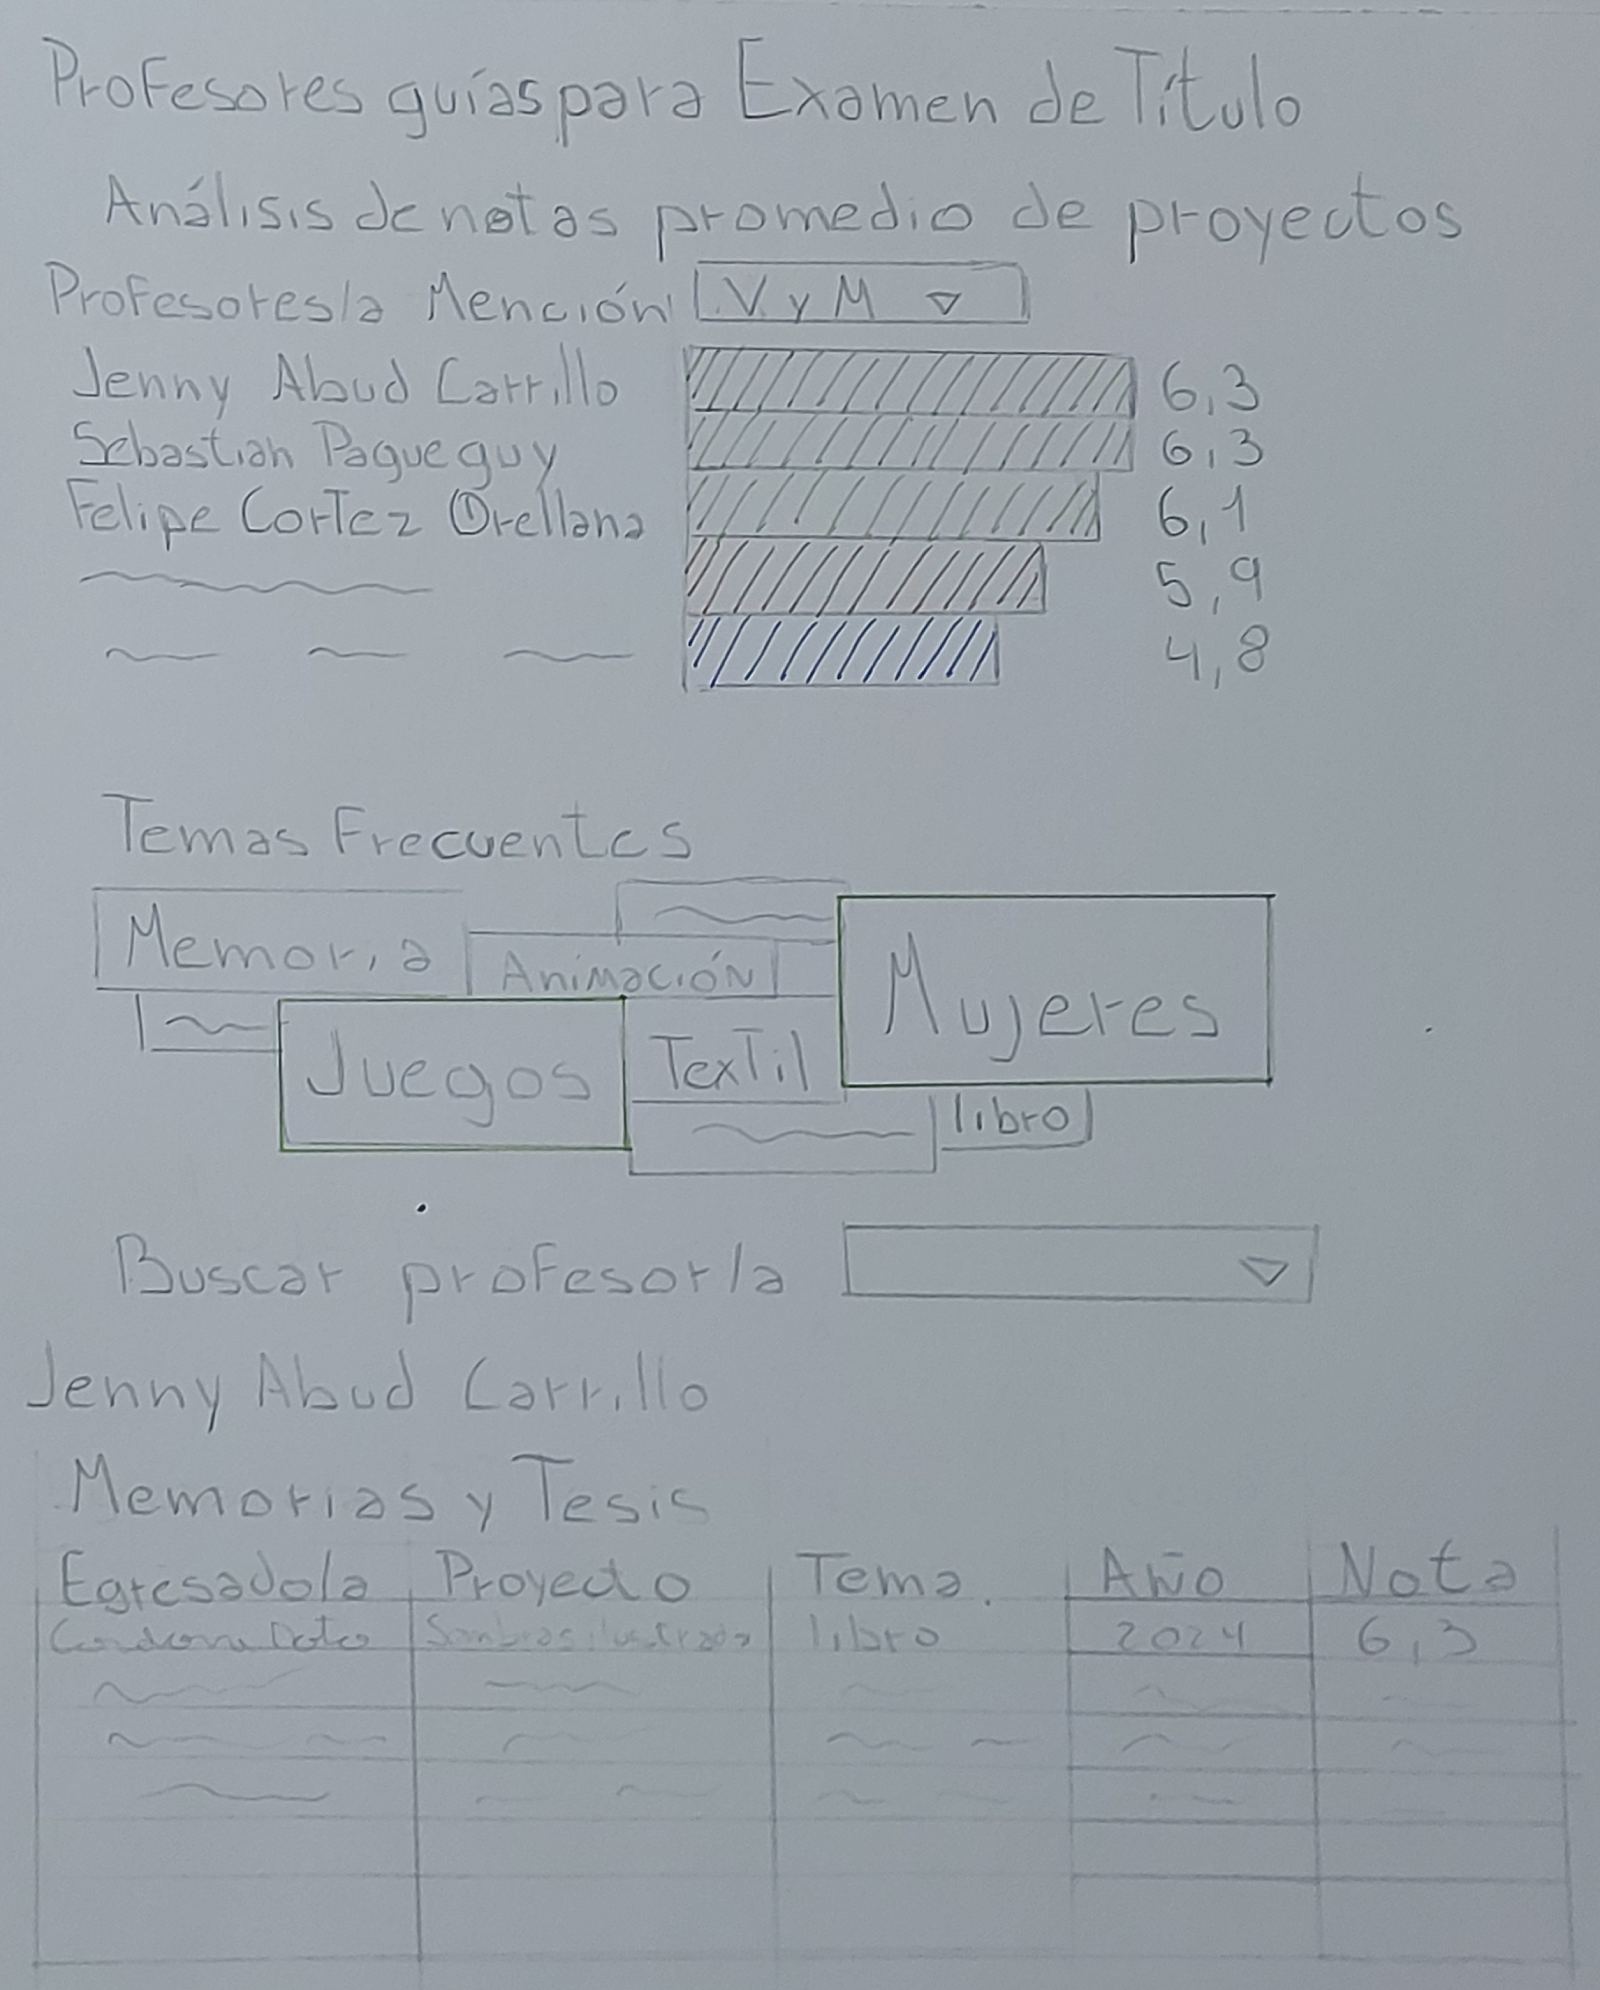 Profesores guías para Examen de Título
Análisis de notas promedio de proyectos
Profesores/a Mención V y M
Jenny Abud Carrillo 6,3
Sebastian Pagueguy 6,3
Felipe Cortez Orellana 6,1
5,9
4,8
Temas Frecuentes
Memoria
Animación
Mujeres
Juegos
Textil
libro
Buscar profesor/a
Jenny Abud Carrillo
Memorias y Tesis
Egresado/a Proyecto Tema. Año Nota
libro 2024 6,3